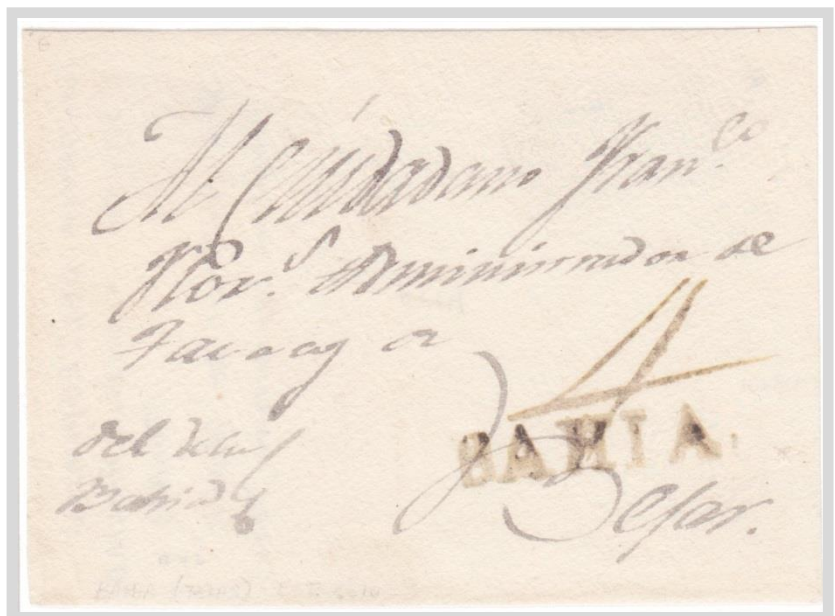 Al Ciudadano Fran.co
Flor.s Administrador de
Tavacos en
4
BAHIA
del
Bahia
Bejar.
BAHIA (TEXAS)